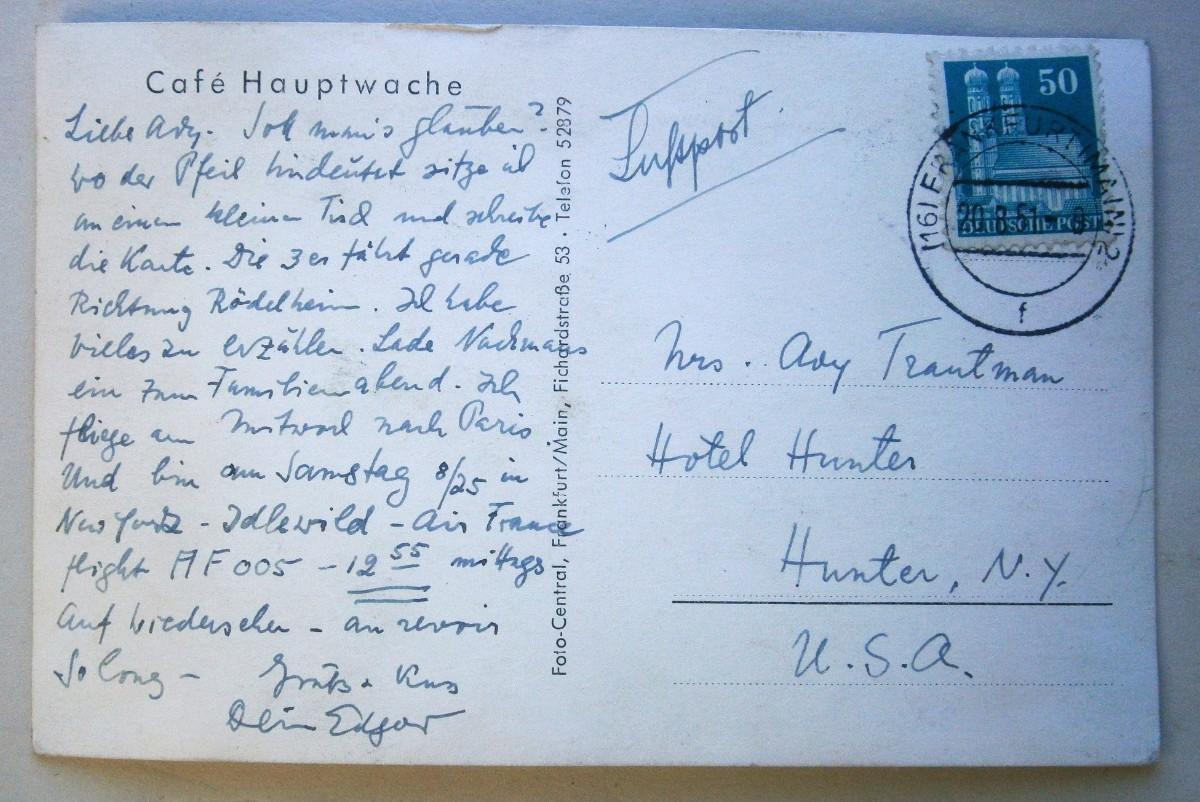 Café Hauptwache
Liebe Ady. Soll man's glauben?
wo der Pfeil hindeutet sitze ich
an einem kleinen Tisch und schreibe
die Karte. Die 3er fährt gerade
Richtung Rödelheim. Ich habe
vieles zu erzählen. Lade Nachmans
ein zum Familienabend. Ich
fliege am Mittwoch nach Paris
und bin am Samstag 8/25 in
New York - Idlewild - Air France
flight AF 005 - 12 55 mittags
Auf Wiedersehen - au revoir
So long - Gruß + Kuss
Dein Edgar
Foto-Central, Frankfurt/Main, Fichardstraße 53 · Telefon 52879
Luftpost
50
DEUTSCHE POST
(16) FRANKFURT (MAIN) 2
20.8.51
f
Mrs. Ady Trautman
Hotel Hunter
Hunter, N.Y.
U.S.A.